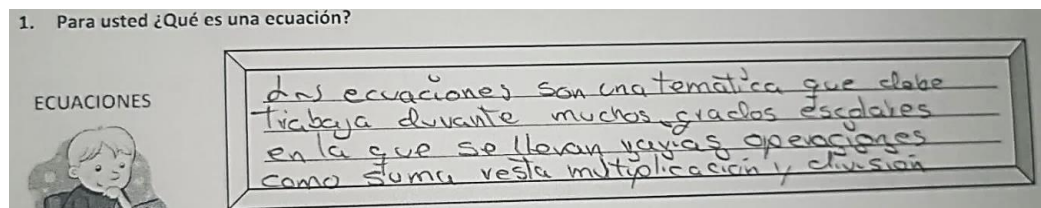 1. Para usted ¿Qué es una ecuación?
ECUACIONES
las ecuaciones son una temática que debe
trabaja durante muchos grados escolares
en la que se llevan varias operaciones
como suma resta multiplicación y división